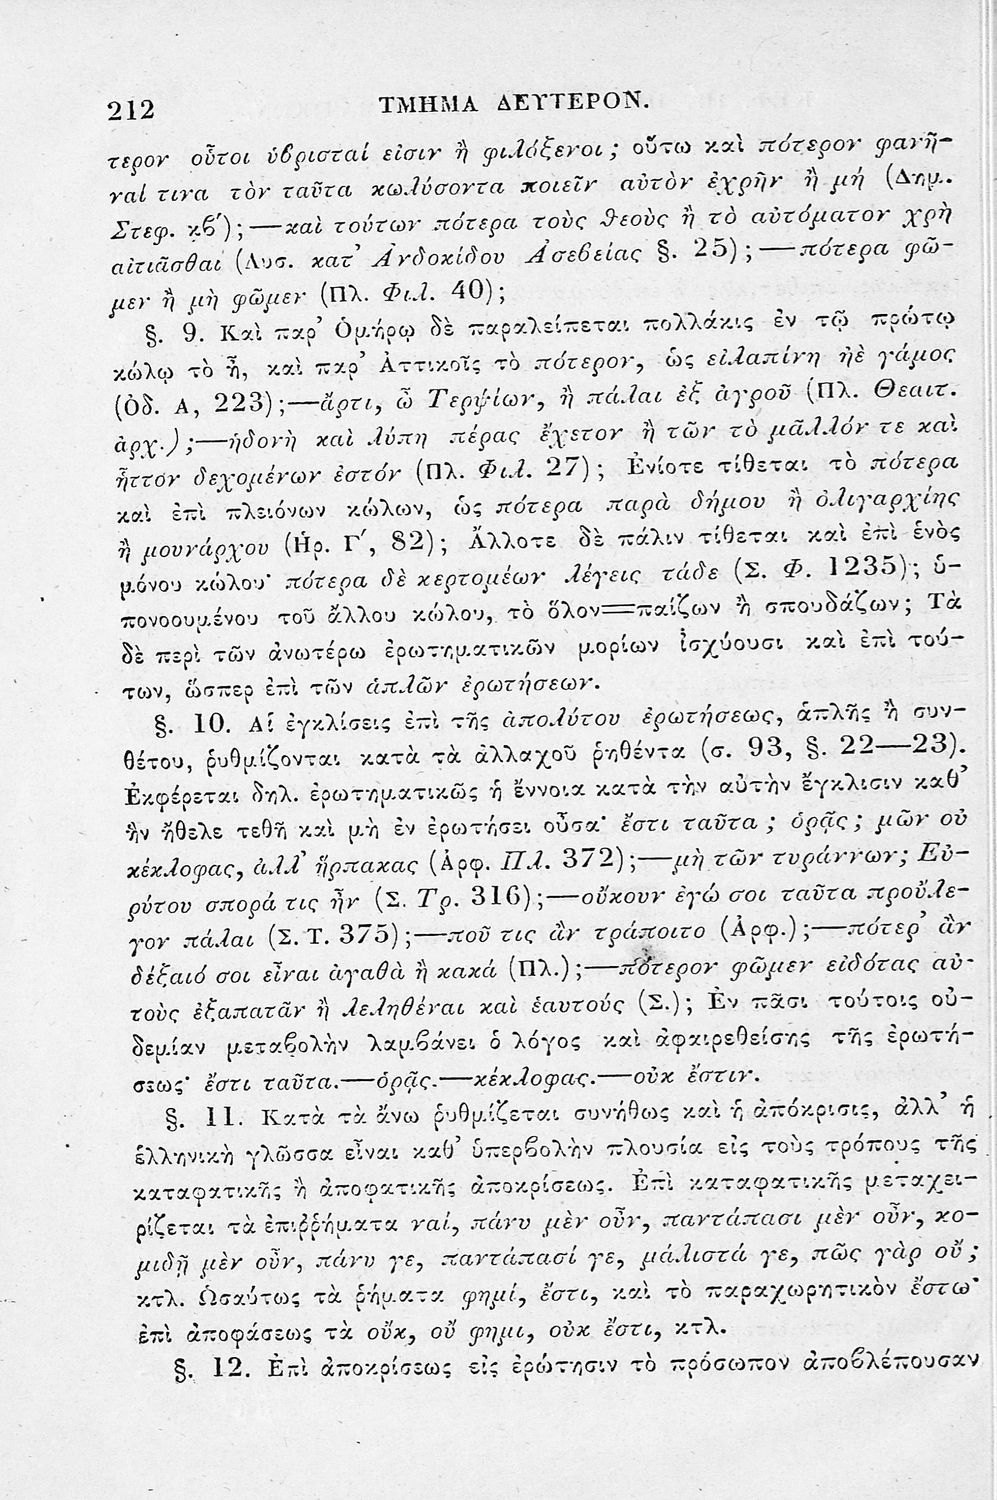 212 ΤΜΗΜΑ ΔΕΥΤΕΡΟΝ.
τερον οὗτοι ὑβρισταί εἰσιν ἢ φιλόξενοι ; οὕτω καὶ πότερον φανῆ-
ναί τινα τὸν ταῦτα κωλύσοντα ποιεῖν αὐτὸν ἐχρῆν ἢ μή (Δημ.
Στεφ. κϐ′) ; — καὶ τούτων πότερα τοὺς θεοὺς ἢ τὸ αὐτόματον χρὴ
αἰτιᾶσθαι (Λυσ. κατ’ Ἀνδοκίδου Ἀσεβείας §. 25) ; — πότερα φῶ-
μεν ἢ μὴ φῶμεν (Πλ. Φιλ. 40) ;
§. 9. Καὶ παρ’ Ὁμήρῳ δὲ παραλείπεται πολλάκις ἐν τῷ πρώτῳ
κώλῳ τὸ ἦ, καὶ παρ’ Ἀττικοῖς τὸ πότερον, ὡς εἰλαπίνη ἠὲ γάμος
(Ὀδ. Α, 223) ; — ἄρτι, ὦ Τερψίων, ἢ πάλαι ἐξ ἀγροῦ (Πλ. Θεαιτ.
ἀρχ.) ; — ἡδονὴ καὶ λύπη πέρας ἔχετον ἢ τῶν τὸ μᾶλλόν τε καὶ
ἧττον δεχομένων ἐστόν (Πλ. Φιλ. 27) ; Ἐνίοτε τίθεται τὸ πότερα
καὶ ἐπὶ πλειόνων κώλων, ὡς πότερα παρὰ δήμου ἢ ὀλιγαρχίης
ἢ μουνάρχου (Ἡρ. Γ′, 82) ; Ἄλλοτε δὲ πάλιν τίθεται καὶ ἐπὶ ἑνὸς
μόνου κώλου· πότερα δὲ κερτομέων λέγεις τάδε (Σ. Φ. 1235) ; ὑ-
πονοουμένου τοῦ ἄλλου κώλου, τὸ ὅλον=παίζων ἢ σπουδάζων ; Τὰ
δὲ περὶ τῶν ἀνωτέρω ἐρωτηματικῶν μορίων ἰσχύουσι καὶ ἐπὶ τού-
των, ὥσπερ ἐπὶ τῶν ἁπλῶν ἐρωτήσεων.
§. 10. Αἱ ἐγκλίσεις ἐπὶ τῆς ἀπολύτου ἐρωτήσεως, ἁπλῆς ἢ συν-
θέτου, ῥυθμίζονται κατὰ τὰ ἀλλαχοῦ ῥηθέντα (σ. 93, §. 22—23).
Ἐκφέρεται δηλ. ἐρωτηματικῶς ἡ ἔννοια κατὰ τὴν αὐτὴν ἔγκλισιν καθ’
ἣν ἤθελε τεθῆ καὶ μὴ ἐν ἐρωτήσει οὖσα· ἔστι ταῦτα ; ὁρᾷς ; μῶν οὐ
κέκλοφας, ἀλλ’ ἥρπακας (Ἀρφ. Πλ. 372) ; — μὴ τῶν τυράννων ; Εὐ-
ρύτου σπορά τις ἦν (Σ. Τρ. 316) ; — οὔκουν ἐγώ σοι ταῦτα προὔλε-
γον πάλαι (Σ. Τ. 375) ; — ποῦ τις ἂν τράποιτο (Ἀρφ.) ; — πότερ’ ἂν
δέξαιό σοι εἶναι ἀγαθὰ ἢ κακά (Πλ.) ; — πότερον φῶμεν εἰδότας αὑ-
τοὺς ἐξαπατᾶν ἢ λεληθέναι καὶ ἑαυτούς (Σ.) ; Ἐν πᾶσι τούτοις οὐ-
δεμίαν μεταβολὴν λαμβάνει ὁ λόγος καὶ ἀφαιρεθείσης τῆς ἐρωτή-
σεως· ἔστι ταῦτα. — ὁρᾷς. — κέκλοφας. — οὐκ ἔστιν.
§. 11. Κατὰ τὰ ἄνω ῥυθμίζεται συνήθως καὶ ἡ ἀπόκρισις, ἀλλ’ ἡ
ἑλληνικὴ γλῶσσα εἶναι καθ’ ὑπερβολὴν πλουσία εἰς τοὺς τρόπους τῆς
καταφατικῆς ἢ ἀποφατικῆς ἀποκρίσεως. Ἐπὶ καταφατικῆς μεταχει-
ρίζεται τὰ ἐπιῤῥήματα ναί, πάνυ μὲν οὖν, παντάπασι μὲν οὖν, κο-
μιδῇ μὲν οὖν, πάνυ γε, παντάπασί γε, μάλιστά γε, πῶς γὰρ οὔ ;
κτλ. Ὡσαύτως τὰ ῥήματα φημί, ἔστι, καὶ τὸ παραχωρητικὸν ἔστω·
ἐπὶ ἀποφάσεως τὰ οὔκ, οὔ φημι, οὐκ ἔστι, κτλ.
§. 12. Ἐπὶ ἀποκρίσεως εἰς ἐρώτησιν τὸ πρόσωπον ἀποβλέπουσαν